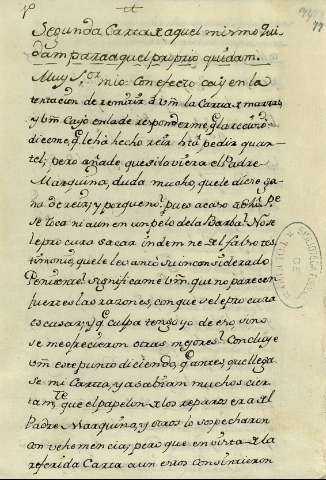 Segunda Carta de aquel mismo Qui-
dam para aquel proprio quidam.
Muy S.or mio: Con efecto caÿ en la
tentacion de remitir à Vm la Carta de marras,
y Vm cayò en la de responderme, q.e la recivió.
diceme, q.e le hà hecho reir hta pedir quar-
tel; pero añade que si lo viera el Padre
Marquina, duda mucho, que le diese ga-
na de reir; y porque no? pues acaso à
se toca ni aun en un pelo de la Barba? No se
le procura sacar indemne del falso tes-
timonio, que le levantò su inconsiderado
Penitente? significame Vm. que no parecen
fuertes las razones, con que se le procura
escusar; y q.e culpa tengo yo de eso, si no
se me ofrecieron otras mejores? Concluye
Vm este punto diciendo, q.e antes, que llega-
se mi Carta, ya sabian muchos cier-
tam.te que el papelon de los reparos era del
Padre Marquina, y otros lo sospecharon
con vehemencia; pero que en vista de la
referida Carta aun estos consintieron